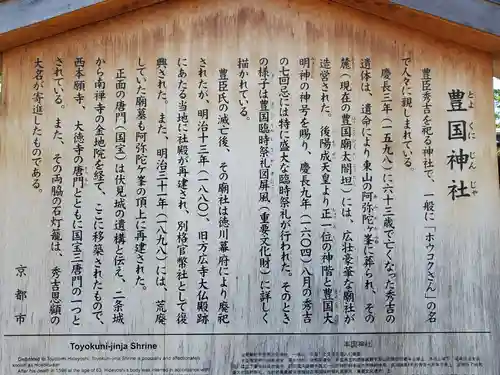 豊国神社
とよくにじんじゃ
豊臣秀吉を祀る神社で、一般に「ホウコクさん」の名
で人々に親しまれている。
慶長三年(一五九八)に六十三歳で亡くなった秀吉の
遺体は、遺命により東山の阿弥陀ケ峯に葬られ、その
麓(現在の豊国廟太閤坦)には、広壮豪華な廟社が
造営された。後陽成天皇より正一位の神階と豊国大
明神の神号を賜り、慶長九年(一六〇四)八月の秀吉
の七回忌には特に盛大な臨時祭礼が行われた。そのとき
の様子は豊国臨時祭礼図屏風(重要文化財)に詳しく
描かれている。
豊臣氏の滅亡後、その廟社は徳川幕府により廃祀
されたが、明治十三年(一八八〇)、旧方広寺大仏殿跡
にあたる当地に社殿が再建され、別格官幣社として復
興された。また、明治三十一年(一八九八)には、荒廃
していた廟墓も阿弥陀ケ峯の頂上に再建された。
正面の唐門(国宝)は伏見城の遺構と伝え、二条城
から南禅寺の金地院を経て、ここに移築されたもので、
西本願寺、大徳寺の唐門とともに国宝三唐門の一つと
されている。また、その両脇の石灯籠は、秀吉恩顧の
大名が寄進したものである。
京都市
Toyokuni-jinja Shrine
Dedicated to Toyotomi Hideyoshi, Toyokuni-jinja Shrine is popularly and affectionately
known as Hokokusan.
After his death in 1598 at the age of 63, Hideyoshi's body was interred in accordance